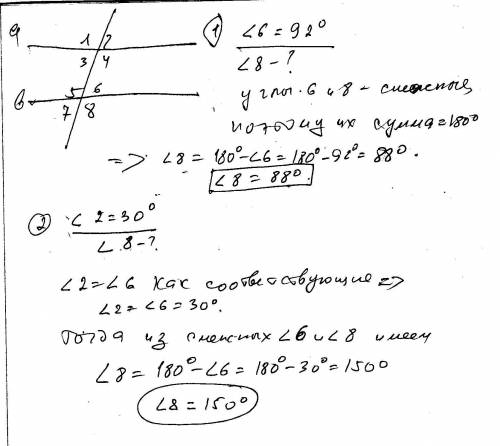 a
1 2
3 4
в
5 6
7 8
① ∠6 = 92°
∠8 - ?
углы 6 и 8 - смежные
поэтому их сумма = 180°
=> ∠8 = 180° - ∠6 = 180° - 92° = 88°.
∠8 = 88°.
② ∠2 = 30°
∠8 - ?
∠2 = ∠6 как соответствующие =>
∠2 = ∠6 = 30°.
Тогда из смежных ∠6 и ∠8 имеем
∠8 = 180° - ∠6 = 180° - 30° = 150°
∠8 = 150°